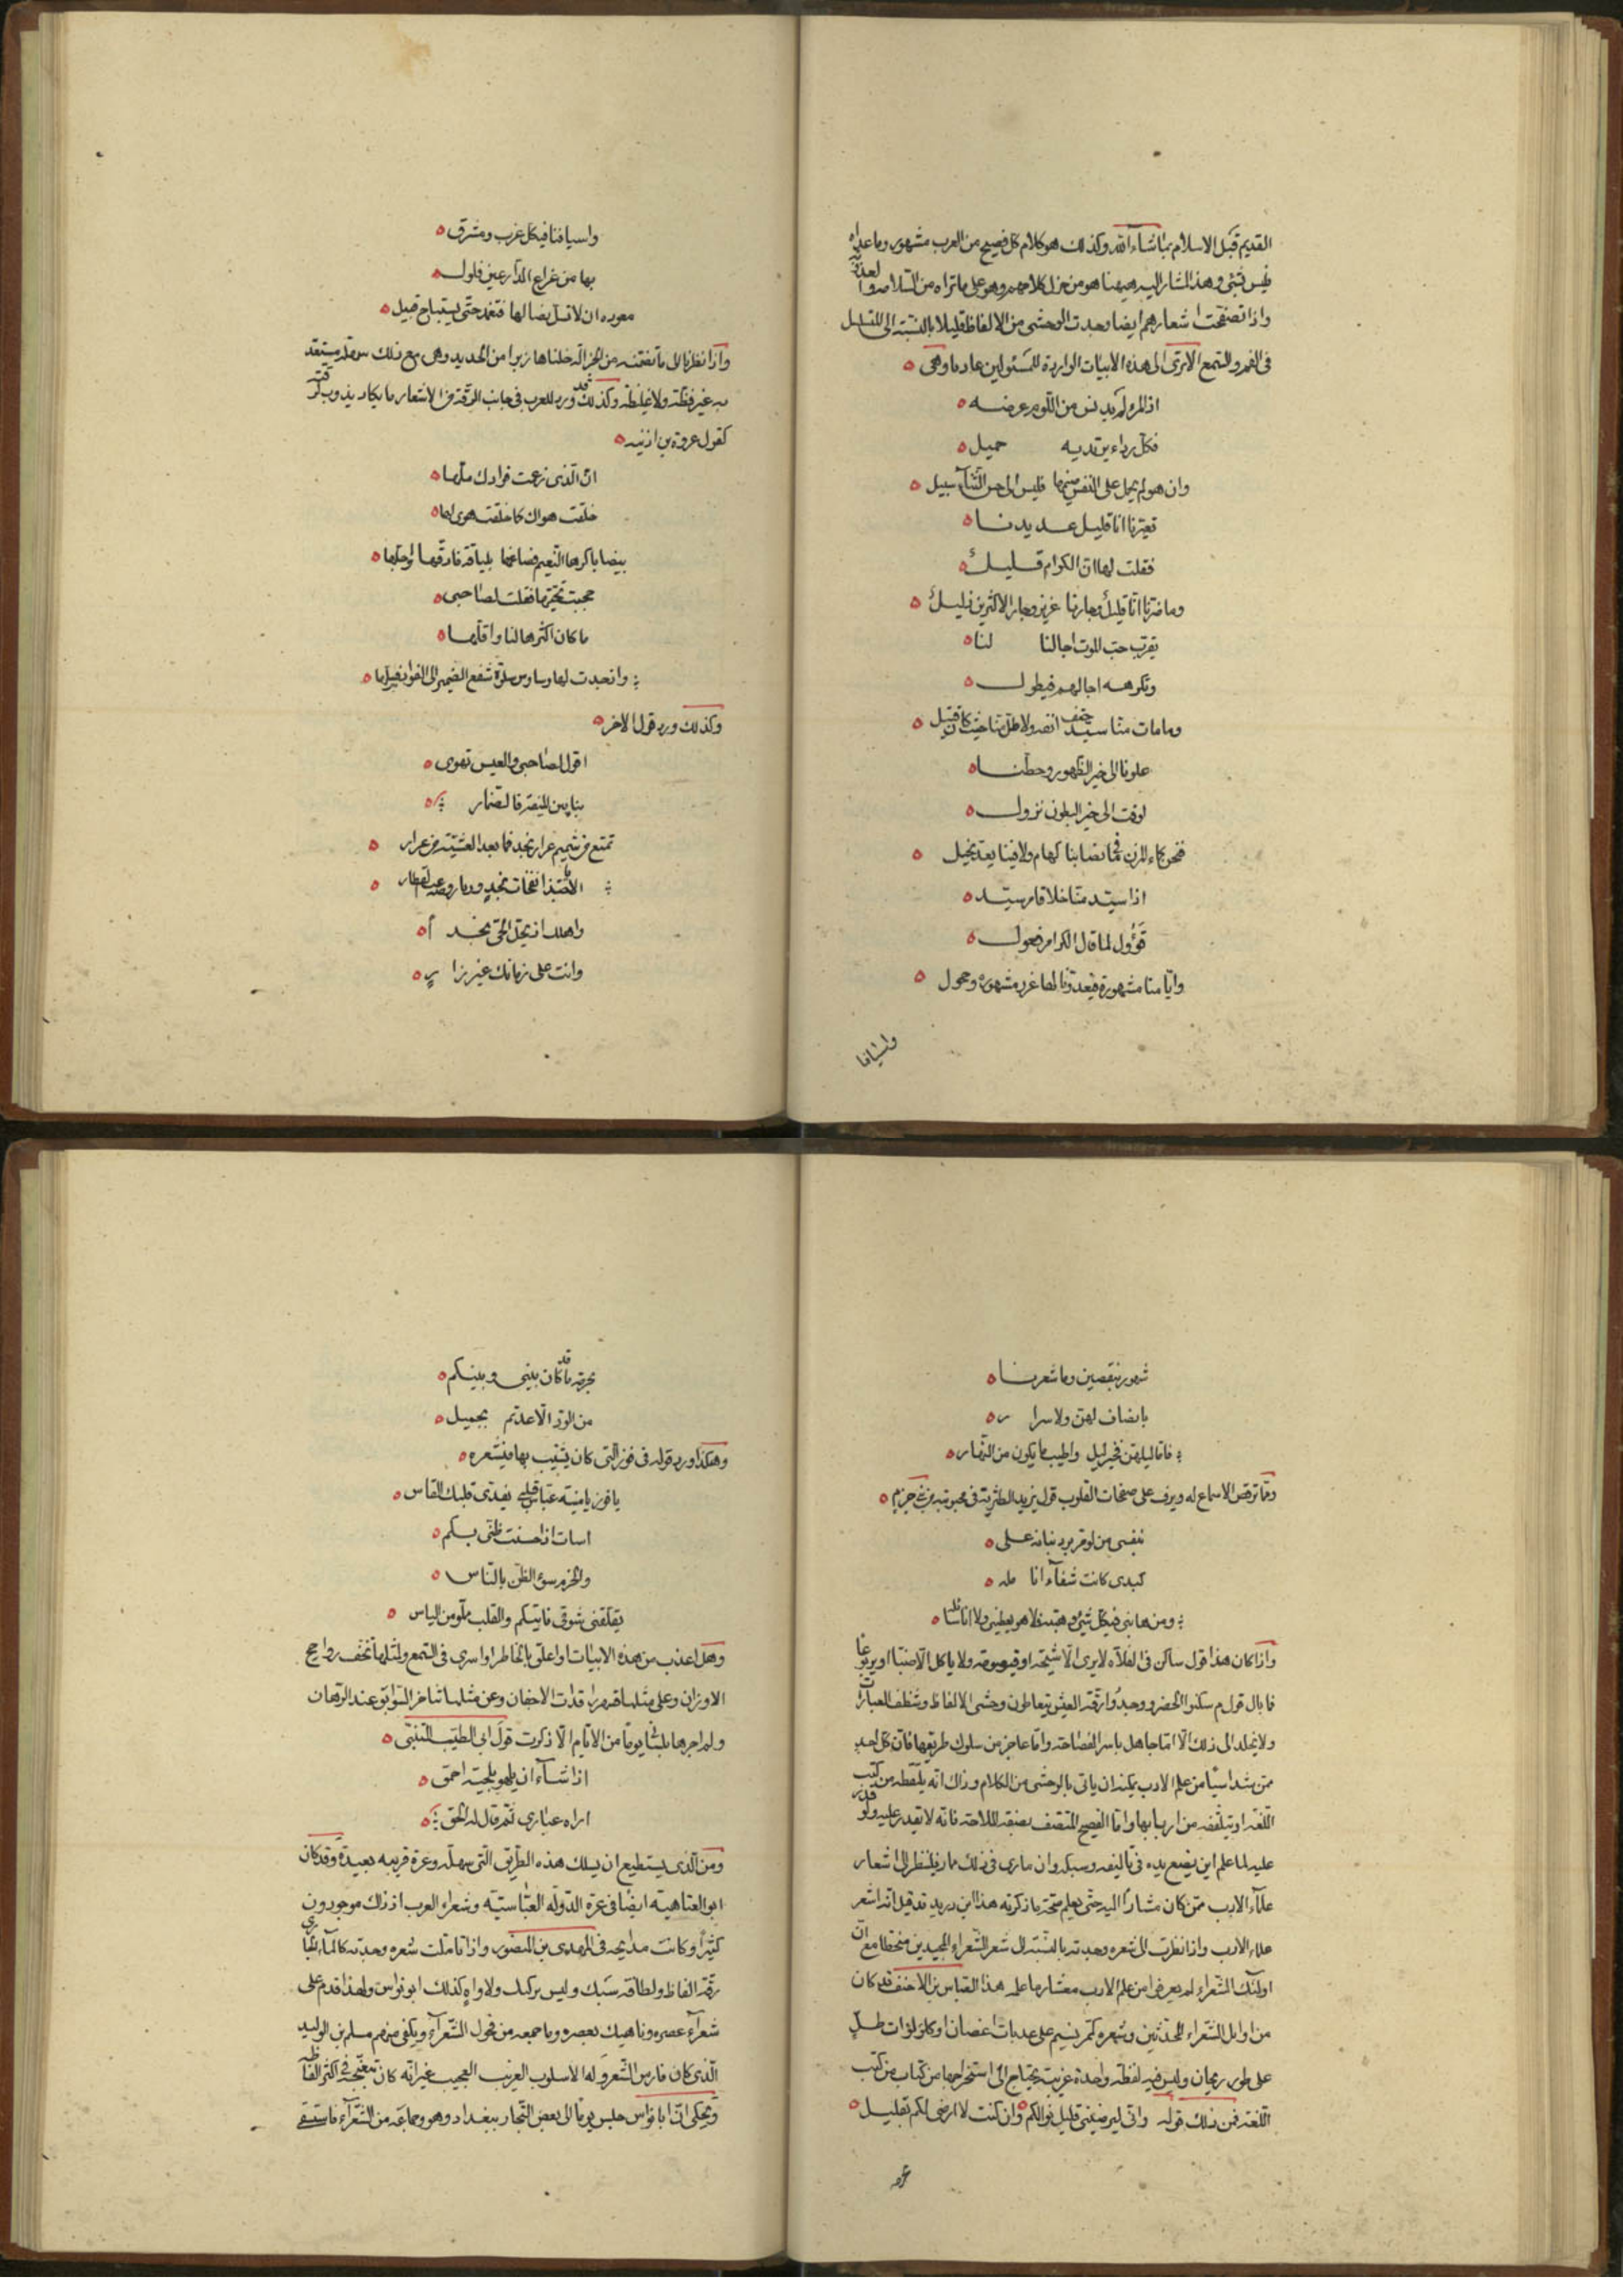 القديم قبل الاسلام بماشاء الله وكذلك هو كلام كل فصيح من العرب مشهور وما عداه
فليس بشئ وهذا المشار اليه ههنا هو من جزل كلامهم وهو على ما تراه من السلاسة والعذوبة
واذا تصفحت اشعارهم ايضا وجدت الوحشى من الالفاظ قليلا بالنسبة الى المسلسل
فى الفم والسمع الا ترى الى هذه الابيات الواردة للسموأل بن عاديا وهى
اذا المرء لم يدنس من اللوم عرضه
فكل رداء يرتديه جميل
وان هو لم يحمل على النفس ضيمها فليس الى حسن الثناء سبيل
تعيرنا انا قليل عديدنا
فقلت لها ان الكرام قليل
وما ضرنا انا قليل وجارنا عزيز وجار الاكثرين ذليل
يقرب حب الموت اجالنا لنا
وتكرهه اجالهم فيطول
وما مات منا سيد حتف انفه ولا طل منا حيث كان قتيل
علونا الى خير الظهور وحطنا
لوقت الى خير البطون نزول
فنحن كماء المزن ما فى نصابنا كهام ولا فينا يعد بخيل
اذا سيد منا خلا قام سيد
قؤول لما قال الكرام فعول
وايامنا مشهورة فى عدونا لها غرر مشهورة وحجول
واسيافنا
واسيافنا فى كل غرب ومشرق
بها من قراع الدارعين فلول
معوده ان لا تسل نصالها فتغمد حتى يستباح قبيل
واذا نظرنا الى ما تضمنته من الجزالة خلناها زبرا من الحديد وهى مع ذلك سهلة مستعذبة
غير فظة ولا غليظة وكذلك قد ورد للعرب فى جانب الرقة من الاشعار ما يكاد يذوب لرقته
كقول عروة بن اذينه
ان الذى زعمت فوادك ملها
خلقت هواك كما خلقت هوى لها
بيضا باكرها النعيم فصاغها بلباقة فادقها واجلها
حجبت تحيتها فقلت لصاحبى
ما كان اكثرها لنا واقلها
واذا وجدت لها وساوس سلوة شفع الضمير الى الفواد فسلها
وكذلك ورد قول الاخر
اقول لصاحبى والعيس تهوى
بنا بين المنيفة فالضمار
تمتع من شميم عرار نجد فما بعد العشية من عرار
الا يا حبذا نفحات نجد وريا روضه غب القطار
واهلك اذ يحل الحى نجدا
وانت على زمانك غير زار
شهور ينقضين وما شعرنا
بانصاف لهن ولا سرار
فاما ليلهن فخير ليل واطيب ما يكون من النهار
ومما ترقص الاسماع له ويرف على صفحات القلوب قول يزيد بن الطثرية فى محبوبته من جرم
بنفسى من لو مر برد بنانه على
كبدى كانت شفاء انامله
ومن هابنى فى كل شئ وهبته فلا هو يعطينى ولا انا سائله
واذا كان هذا قول ساكن فى الفلاة لا يرى الا شيحة او قيصومة ولا ياكل الا ضبا او يربوعا
فما بال قوم سكنوا الحضر ووجدوا رقة العيش يتعاطون وحشى الالفاظ وشظف العبارات
ولا يخلد الى ذلك الا اما جاهل باسرار الفصاحة واما عاجز من سلوك طريقها فان كل احد
ممن شدا شيئا من علم الادب يمكنه ان ياتى بالوحشى من الكلام وذاك انه يلتقطه من كتب
اللغة او يتلقفه من اربابها واما الفصيح المتصف بصفة الملاحة فانه لا يقدر عليه ولو قدر
عليه لما علم اين يضع يده فى تاليفه وسبكه وان مارى فى ذلك ممار فلينظر الى اشعار
علماء الادب ممن كان مشارا اليه حتى يعلم صحة ما ذكرته هذا ابن دريد قد قيل انه اشعر
علماء الادب واذا نظرت الى شعره وجدته بالنسبة الى شعر الشعراء المجيدين منحطا مع ان
اولئك الشعراء لم يعرفوا من علم الادب معشار ما علمه هذا العباس بن الاحنف قد كان
من اوايل الشعراء المحدثين وشعره كمر نسيم على عذبات اغصان او كلؤلؤات طل
على طرر ريحان وليس فيه لفظة واحدة غريبة يحتاج الى استخراجها من كتاب من كتب
اللغة فمن ذلك قوله وانى ليرضينى قليل نوالكم وان كنت لا ارضى لكم بقليل
بحرمة ما قد كان بينى وبينكم
من الود الا عدتم بجميل
وهكذا ورد قوله فى فوز التى كان يشبب بها فى شعره
يا فوز يا منية عباس قلبى يفدى قلبك القاس
اسات اذ احسنت ظنى بكم
والحزم سوء الظن بالناس
يقلقنى شوقى فاتيكم والقلب مملو من الياس
وهل اعذب من هذه الابيات واعلق بالخاطر واسرى فى السمع ولمثلها تخف رواجح
الاوزان وعلى مثلها تسهر راقدات الاجفان وعن مثلها تتاخر السوابق عند الرهان
ولم اجرها بلسانى يوما من الايام الا ذكرت قول ابى الطيب المتنبى
اذا شاء ان يلهو بلحية احمق
اراه غبارى ثم قال له الحق
ومن الذى يستطيع ان يسلك هذه الطريق التى سهلة وعرة قريبة بعيدة وقد كان
ابو العتاهية ايضا فى غرة الدولة العباسية وشعراء العرب اذ ذاك موجودون
كثيرا وكانت مدايحه فى المهدى بن المنصور واذا تاملت شعره وجدته كالماء الجارى
رقة الفاظ ولطافة سبك وليس بركيك ولا واه وكذلك ابو نواس ولهذا قدم على
شعراء عصره وناهيك بعصره وما جمعه من فحول الشعراء ويكفى منهم مسلم بن الوليد
الذى كان فارس الشعر وله الاسلوب الغريب العجيب غير انه كان يتعنجه فى اكثر الفاظه
ويحكى ان ابا نواس جلس يوما الى بعض التجار ببغداد وهو وجماعة من الشعراء فاستسقى